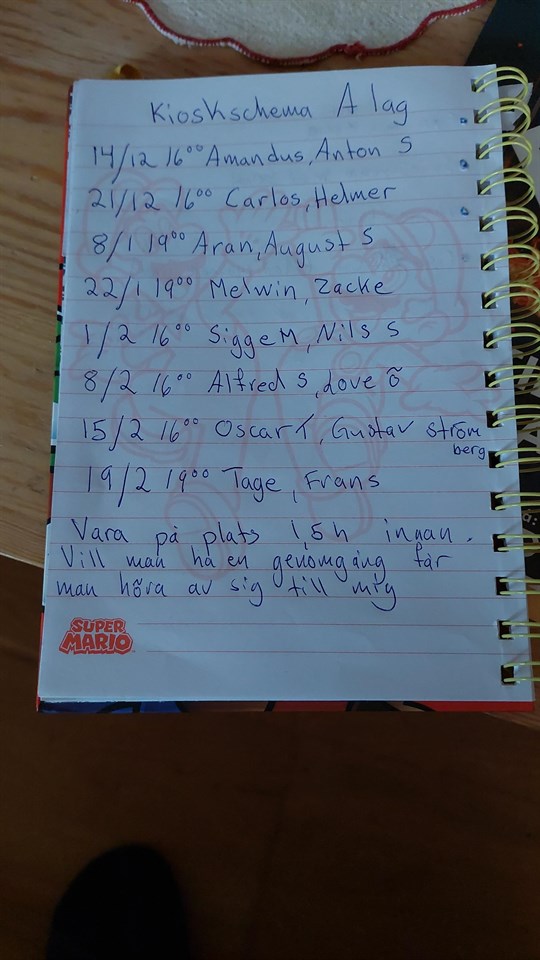 Kioskschema A lag
14/12 16⁰⁰ Amandus, Anton S
21/12 16⁰⁰ Carlos, Helmer
8/1 19⁰⁰ Aran, August S
22/1 19⁰⁰ Melwin, Zacke
1/2 16⁰⁰ Sigge M, Nils S
8/2 16⁰⁰ Alfred S, Love Ö
15/2 16⁰⁰ Oscar T, Gustav Ström
berg
19/2 19⁰⁰ Tage, Frans
Vara på plats 1,5h innan.
Vill man ha en genomgång får
man höra av sig till mig
SUPER
MARIO